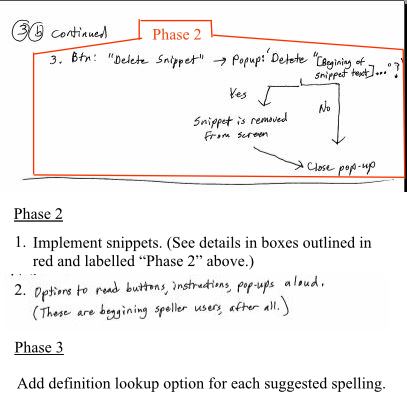 3 b continued
Phase 2
3. Btn: "Delete Snippet" → Popup: 'Delete "[Begining of
snippet text]..."?'
Yes
No
Snippet is removed
from screen
Close pop-up
Phase 2
1. Implement snippets. (See details in boxes outlined in
red and labelled “Phase 2” above.)
2. Options to read buttons, instructions, pop-ups aloud.
(These are beggining speller users, after all.)
Phase 3
Add definition lookup option for each suggested spelling.